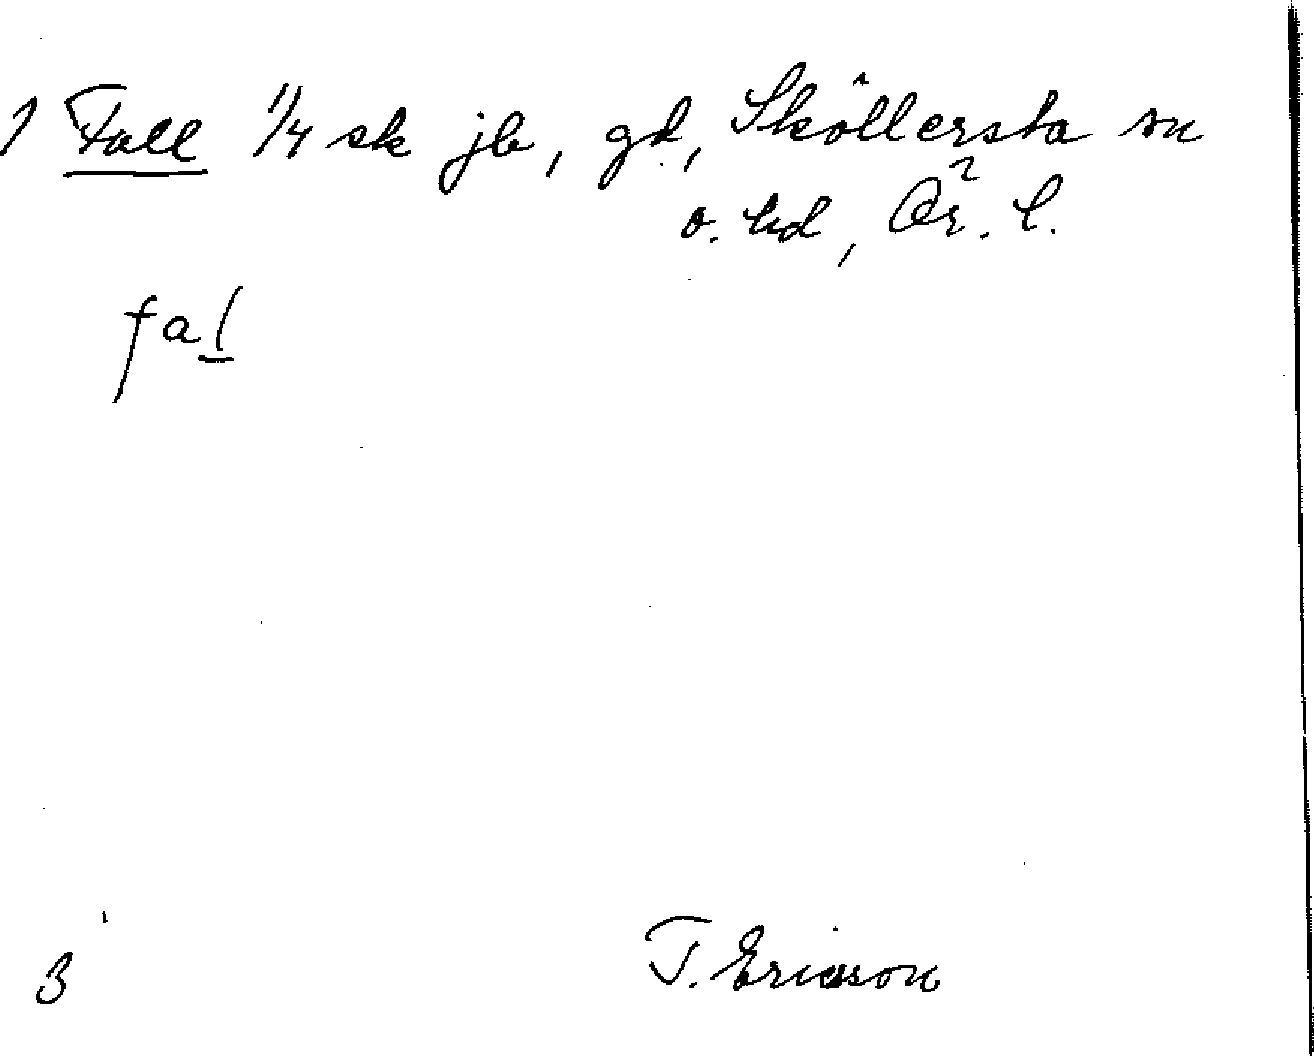 1 Fall 1/4 sk jb, gd, Sköllersta sn
o. hd, Ör. l.
fal
3 T. Ericson